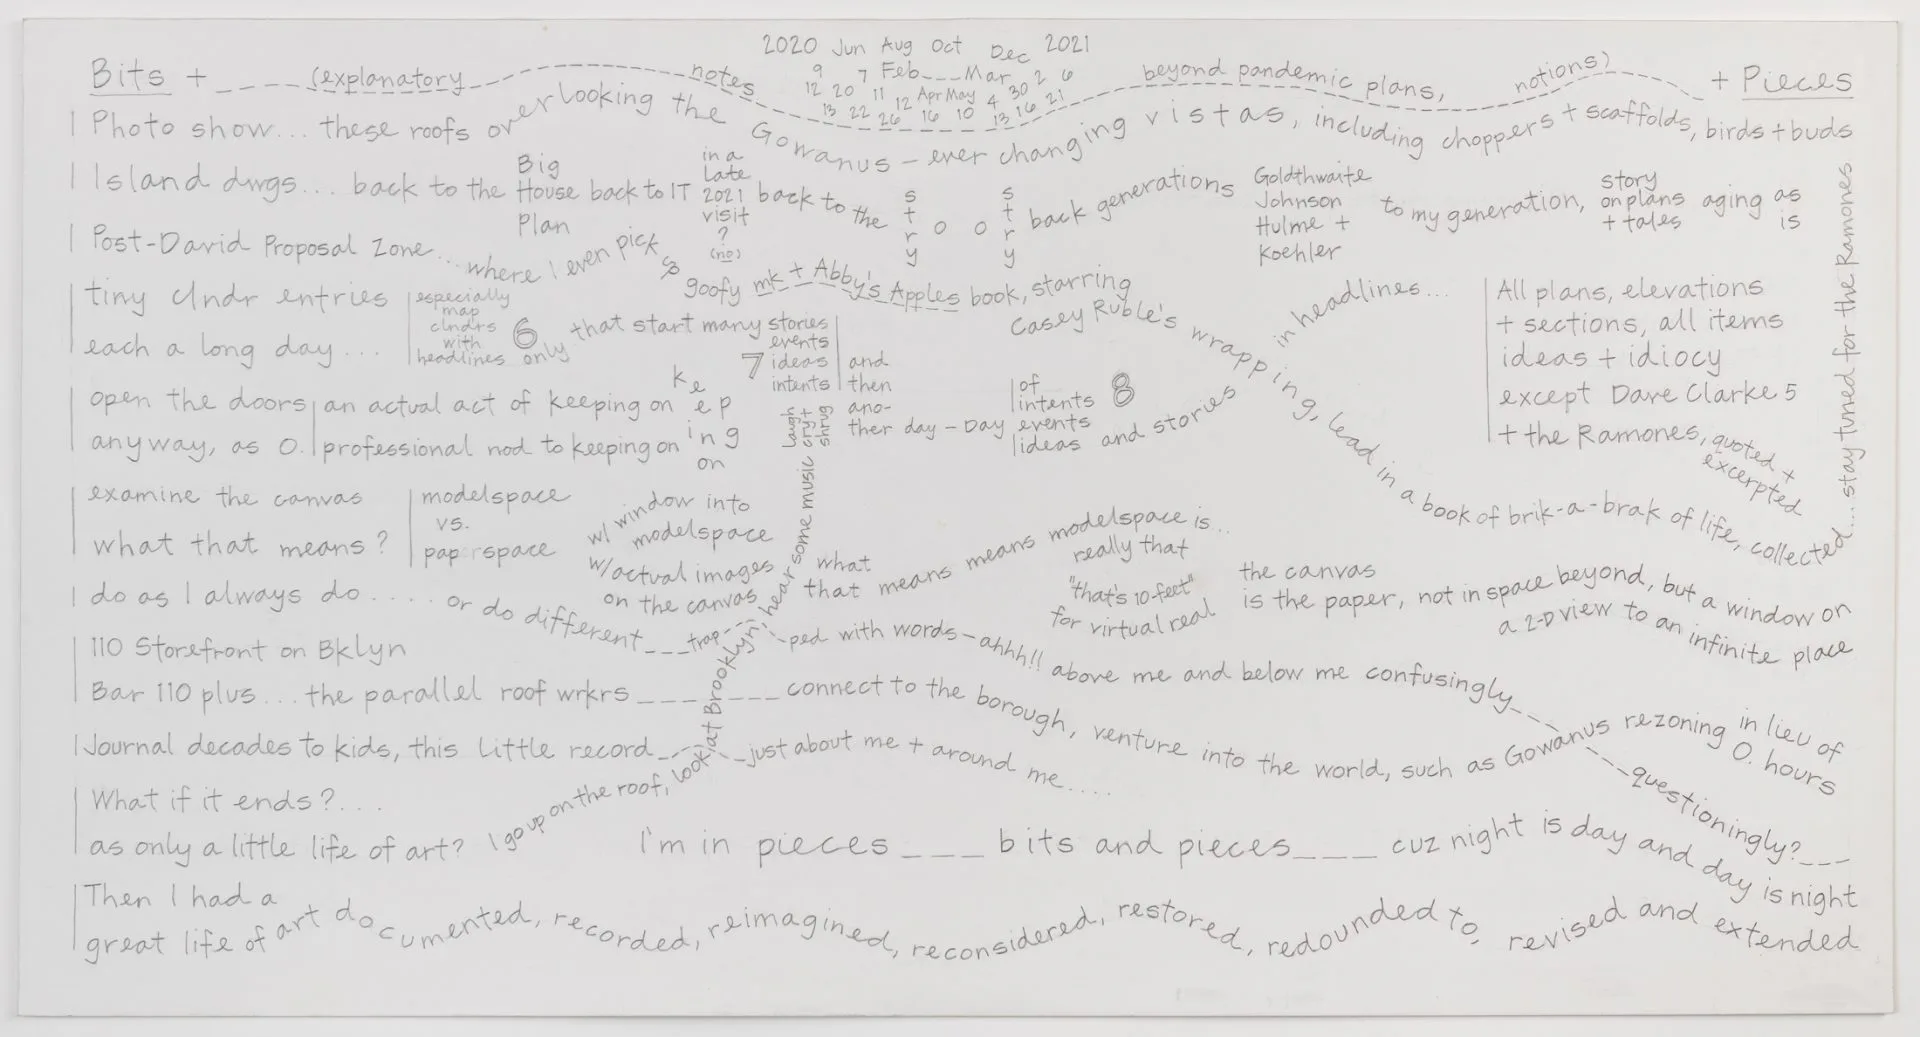 2020 Jun Aug Oct Dec 2021
9 7 Feb___Mar 2 6
12 20 11 12 Apr May 4 30 21
13 22 26 16 10 13 16
Bits + ____ (explanatory notes beyond pandemic plans, notions) + Pieces
| Photo show... these roofs overlooking the Gowanus – ever changing vistas, including choppers + scaffolds, birds + buds
| Island dwgs... back to the Big House Plan back to IT in a late 2021 visit? (no) back to the story o o story back generations Goldthwaite Johnson Hulme + Koehler to my generation, story on plans + tales aging as is
| Post-David Proposal Zone... where I even pick up goofy mk + Abby's Apples book, starring Casey Ruble's wrapping, lead in a book of brik-a-brak of life, collected... stay tuned for the Ramones
in headlines...
tiny clndr entries
each a long day...
especially
map
clndrs
with
headlines only
6 that start many stories
events
7 ideas
intents
and
then
ano-
ther day – Day
of
intents 8
events
ideas and stories
All plans, elevations
+ sections, all items
ideas + idiocy
except Dave Clarke 5
+ the Ramones, quoted + excerpted
open the doors
anyway, as O.
an actual act of keeping on
professional nod to keeping on
keeping
on
laugh
cry +
shrug
examine the canvas
what that means?
modelspace
vs.
paperspace
w/ window into
modelspace
w/actual images
on the canvas
what
that means means modelspace is...
really that
"that's 10-feet"
for virtual real
the canvas
is the paper, not in space beyond, but a window on
a 2-D view to an infinite place
I do as I always do.... or do different___trap---ped with words – ahhh!! above me and below me confusingly_____questioningly?___
110 Storefront on Bklyn
Bar 110 plus... the parallel roof wrkrs ______connect to the borough, venture into the world, such as Gowanus rezoning in lieu of O. hours
| Journal decades to kids, this little record_____just about me + around me....
What if it ends?...
as only a little life of art? I go up on the roof, look at Brooklyn, hear some music
I'm in pieces ___ bits and pieces___ cuz night is day and day is night
Then I had a
great life of art documented, recorded, reimagined, reconsidered, restored, redounded to, revised and extended